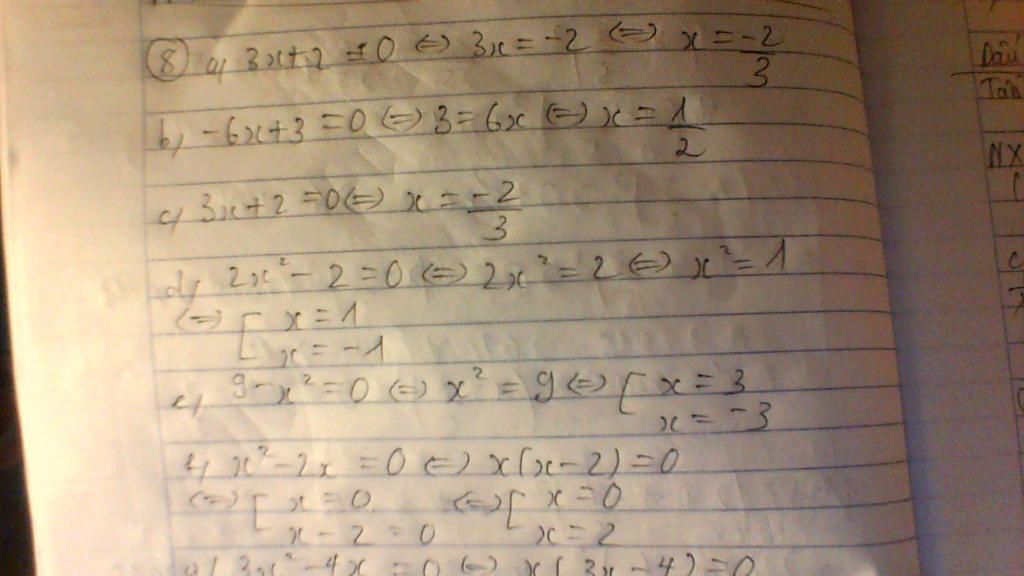 ⑧ a, 3x+2 = 0 ⇔ 3x = -2 ⇔ x = -2/3
b, -6x+3 = 0 ⇔ 3 = 6x ⇔ x = 1/2
c, 3x+2 = 0 ⇔ x = -2/3
d, 2x² - 2 = 0 ⇔ 2x² = 2 ⇔ x² = 1
⇔ [ x = 1
x = -1
e, 9 - x² = 0 ⇔ x² = 9 ⇔ [ x = 3
x = -3
f, x² - 2x = 0 ⇔ x(x-2) = 0
⇔ [ x = 0 ⇔ [ x = 0
x - 2 = 0 x = 2
g, 3x² - 4x = 0 ⇔ x(3x-4) = 0
Dấu
NX